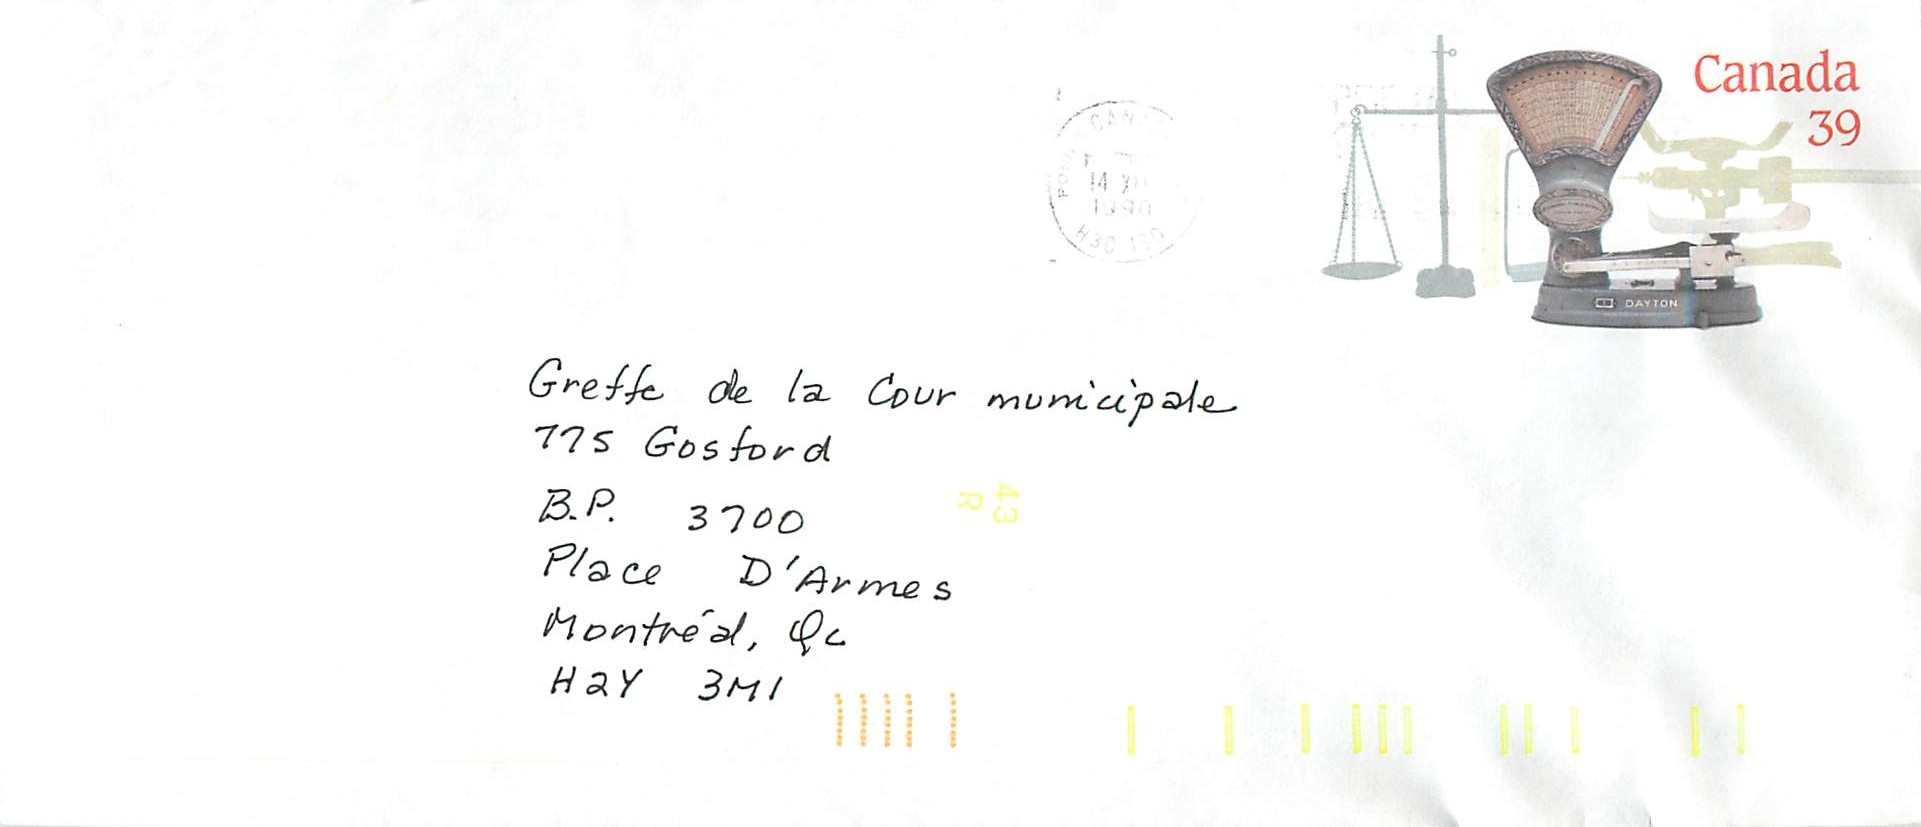 Canada
39
CAN
14 XII
1990
H3C 1S0
DAYTON
Greffe de la Cour municipale
775 Gosford
B.P. 3700
Place D'Armes
Montréal, Qc
H2Y 3M1
43
R